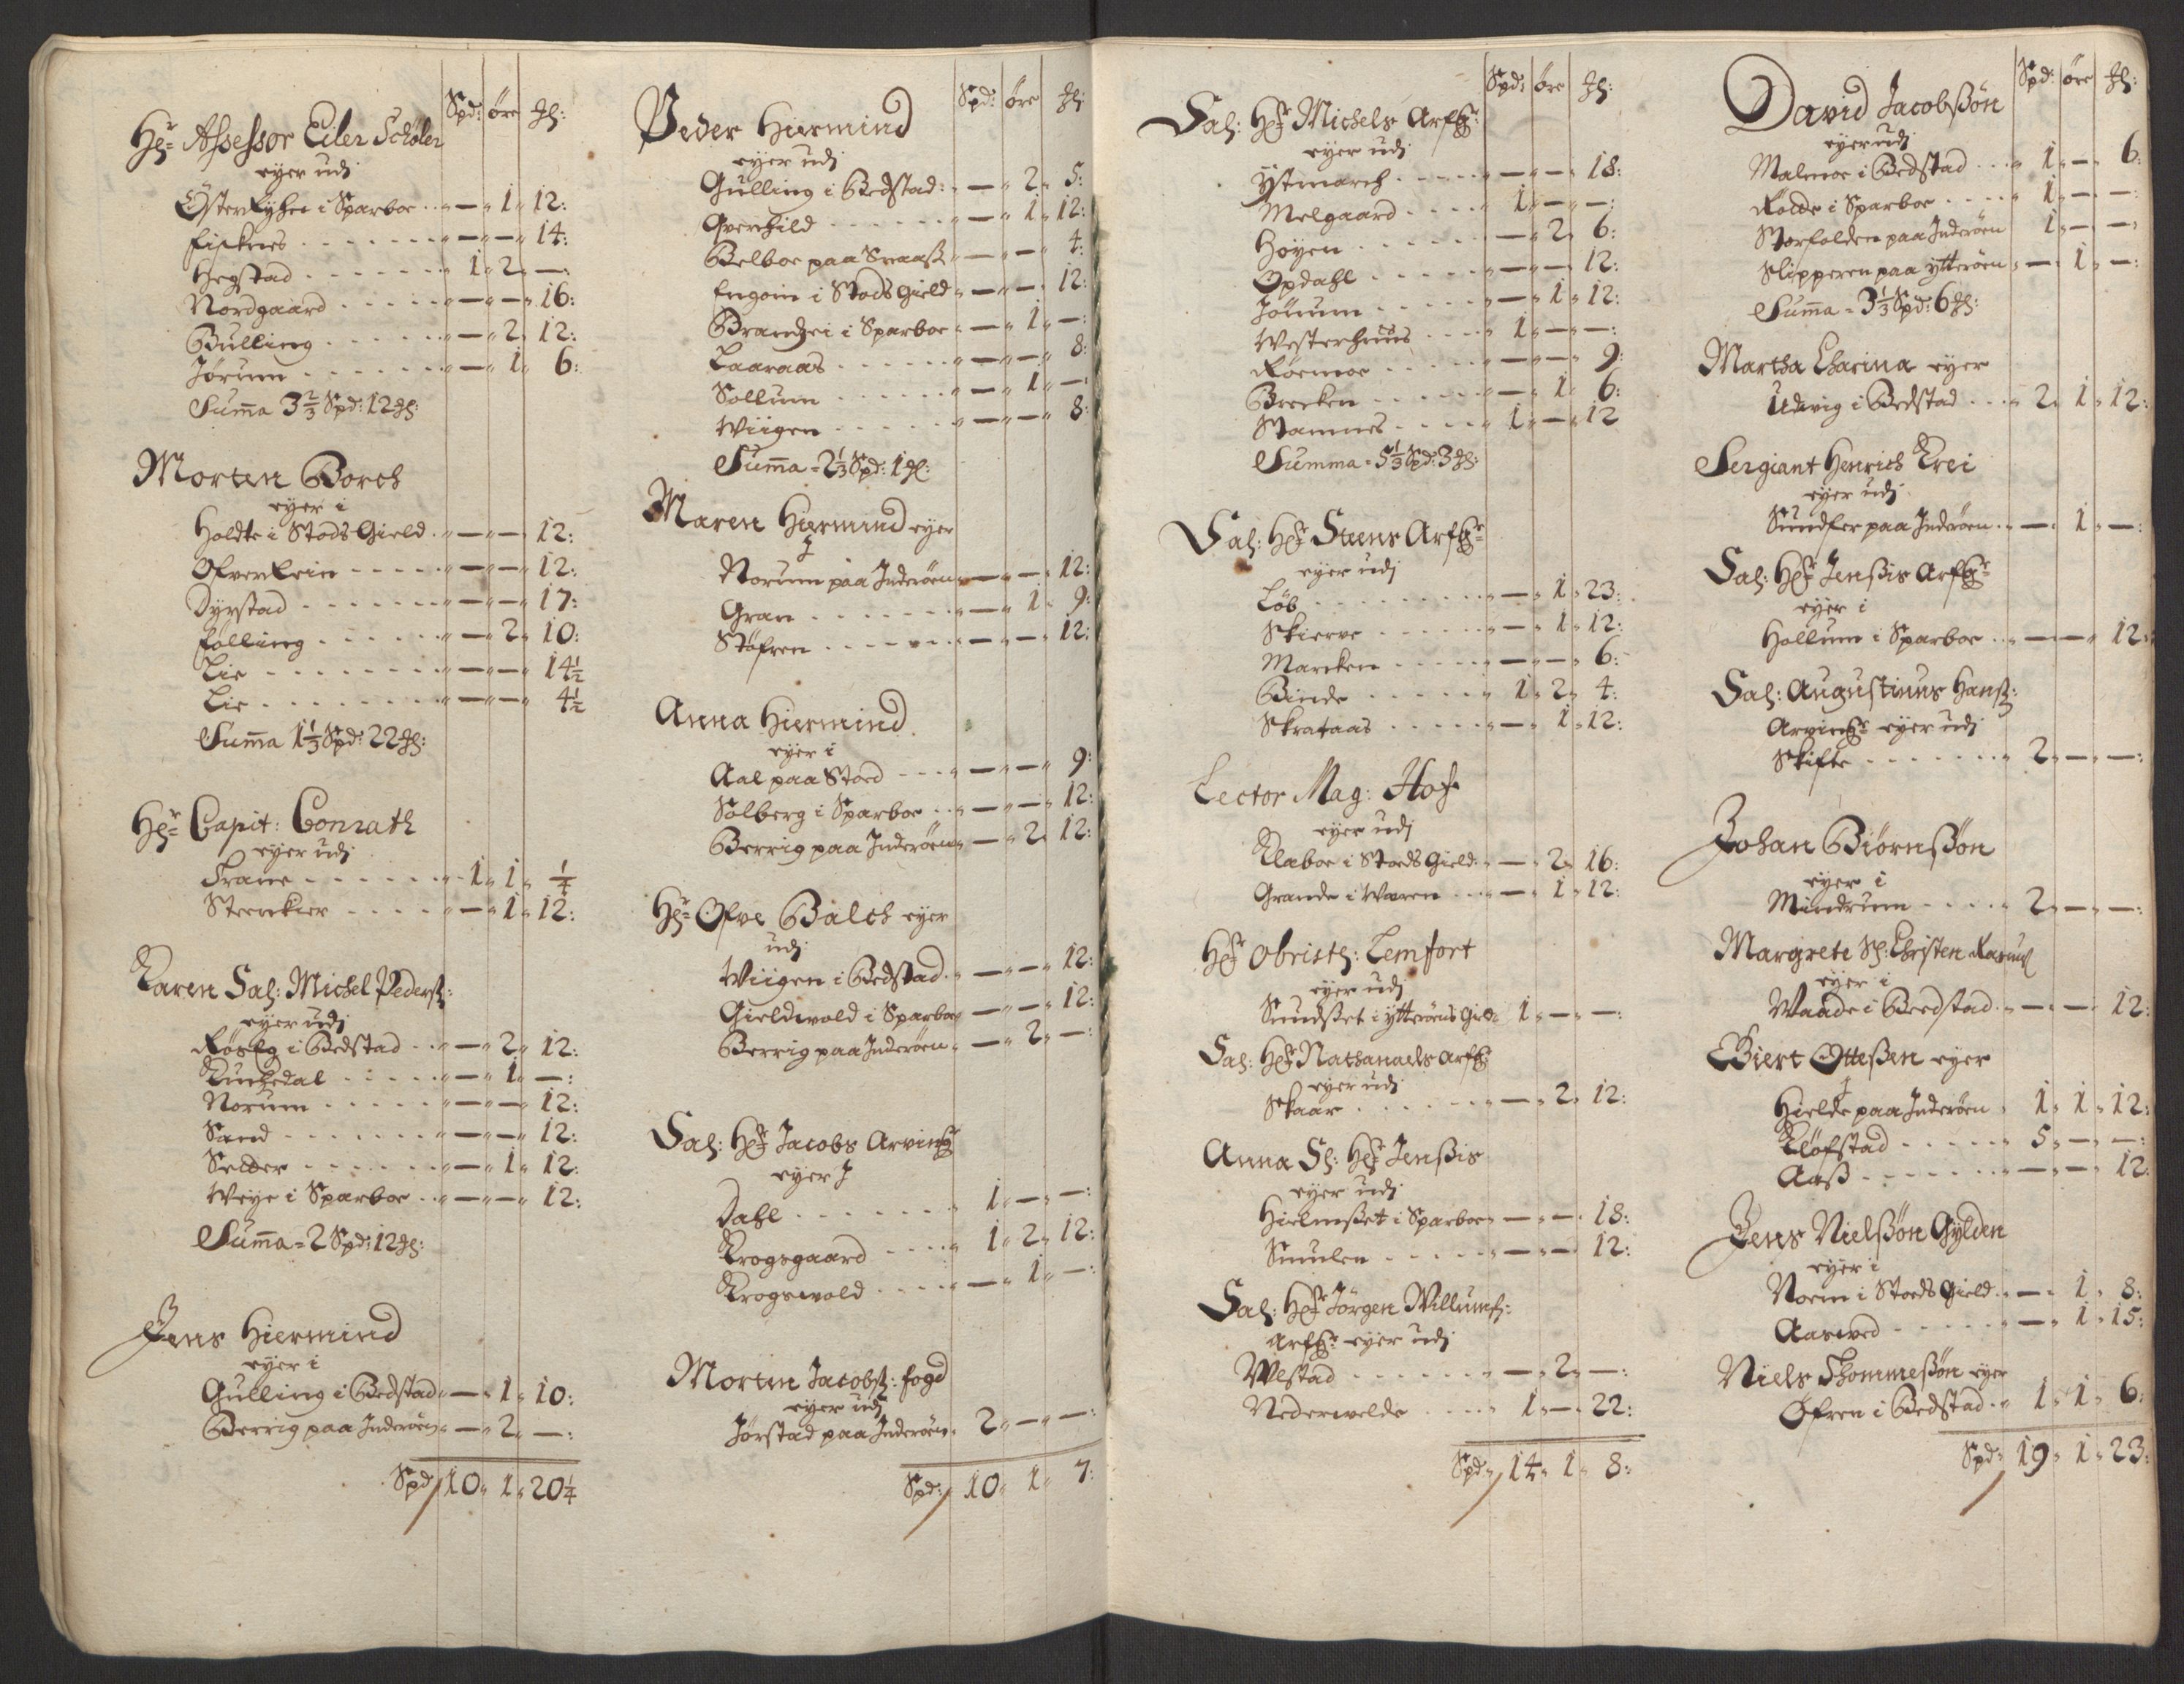 Spd: öre ʒl:
Hr: Assessor Eiler Schøler
eyer udj
Österkyhn i Sparboe - " 1 " 12:
Fisknes - " - " 14:
Hegstad 1 " 2 " -:
Nordgaard - " - " 16:
Bulling - " 2 " 12:
Jørum - " 1 " 6:
Summa 3 2/3 Spd: 12 ʒl:
Morten Borch
eyer i
Holdte i Stods Gield - " - " 12:
Ofverlein - " - " 12:
Dyrstad - " - " 17:
Folling - " 2 " 10:
Lie - " - " 14 1/2
Lie - " - " 4 1/2
Summa 1 1/3 Spd: 22 ʒl:
Hr: Capit: Conrath
eyer udj
Trane 1 " 1 " 1/4
Steenkier - " 1 " 12:
Karen Sal: Michel Pederß:
eyer udj
Røseg i Bedstad - " 2 " 12:
Kuchedal - " 1 " -:
Norum - " - " 12:
Sand - " - " 12:
Selder - " 1 " 12:
Weye i Sparboe - " - " 12:
Summa = 2 Spd: 12 ʒl:
Jens Hiermind
eyer i
Gulling i Bedstad - " 1 " 10:
Berrig paa Inderøen - " 2 " -:
Spd 10 " 1 " 20 1/4
Spd: öre ʒl:
Peder Hiermind
eyer udj
Gulling i Bedstad - " 2 " 5:
Qverhild - " 1 " 12:
Belboe paa Snaaß - " - " 4:
Engoin i Stods Gield - " - " 12:
Brandzei i Sparboe - " 1 " -:
Laaraas - " - " 8:
Sollum - " 1 " -:
Wiigen - " - " 8:
Summa = 2 1/3 Spd: 1 ʒl:
Maren Hiermind eyer
J
Norum paa Inderøen - " - " 12:
Gran - " 1 " 9:
Støfren - " - " 12:
Anna Hiermind
eyer i
Aal paa Stod - " - " 9:
Solberg i Sparboe - " - " 12:
Berrig paa Inderøen - " 2 " 12:
Hr: Ofve Balch eyer
udj
Wiigen i Bedstad - " - " 12:
Gieldwold i Sparboe - " - " 12:
Berrig paa Inderøen - " 2 " -:
Sal: Hr: Jacobs Arving
eyer J
Dahl 1 " - " -:
Krogsgaard 1 " 2 " 12:
Krogswold - " 1 " -:
Morten Jacobß: fogd
eyer udj
Jørstad paa Inderøen 2 " - " -:
Spd: 10 " 1 " 7:
Spd: öre ʒl:
Sal: Hr: Michels Arfg:
eyer udj
Ystmarch - " - " 18:
Melgaard 1 " - " -:
Høyen - " 2 " 6:
Opdahl - " - " 12:
Jørum - " 1 " 12:
Westerhuus 1 " - " -:
Røemoe - " - " 9:
Brecken - " 1 " 6:
Stamnes 1 " - " 12
Summa = 5 1/3 Spd: 3 ʒl:
Sal: Hr: Steens Arfg:
eyer udj
Løb - " 1 " 23:
Skierve - " 1 " 12:
Marcken - " - " 6:
Binde 1 " 2 " 4:
Skrataas - " 1 " 12:
Lector Mag: Hof
eyer udj
Klaboe i Stods Gield - " 2 " 16:
Grande i Waren - " 1 " 12:
Hr: Obristl: Lemfort
eyer udj
Sundset i ytterøens Gield 1 " - " -:
Sal: Hr: Nathanaels Arfg:
eyer udj
Skaar - " 2 " 12:
Anna Sl: Hr: Jenßis
eyer udj
Hielmset i Sparboe - " - " 18:
Smulen - " - " 12:
Sal: Hr: Jørgen Willumß:
Arfg: eyer udj
Wlstad - " 2 " -:
Nederwelde 1 " - " 22:
Spd: 14 " 1 " 8:
Spd: öre ʒl:
David Jacobßön
eyer udj
Malmoe i Bedstad 1 " - " 6:
Rolde i Sparboe 1 " - " -:
Norfolden paa Inderøen 1 " - " -:
Slipperen paa ytterøen - " 1 " -:
Summa = 3 1/3 Spd: 6 ʒl:
Martha Charina eyer
Udwig i Bedstad 2 " 1 " 12:
Sergiant Henrich Krei
eyer udj
Sundfer paa Inderøen - " 1 " -:
Sal: Hr: Jenßis Arfg:
eyer i
Hollum i Sparboe - " - " 12:
Sal: Augustinus Hanß:
Arving: eyer udj
Skifte 2 " - " -:
Johan Biørnßön
eyer i
Mindrum 2 " - " -:
Margrete Sl: Christen
eyer i
Waade i Beedstad - " - " 12:
Giert Ottesen eyer
J
Hielde paa Inderøen 1 " 1 " 12:
Kløfstad 5 " - " -:
Aaß - " - " 12:
Jens Nielßön Gylden
eyer i
Noem i Stods Gield - " 1 " 8:
Aasved - " 1 " 15:
Niels Thommeßön eyer
Øfren i Bedstad 1 " 1 " 6:
Spd: 19 " 1 " 23: